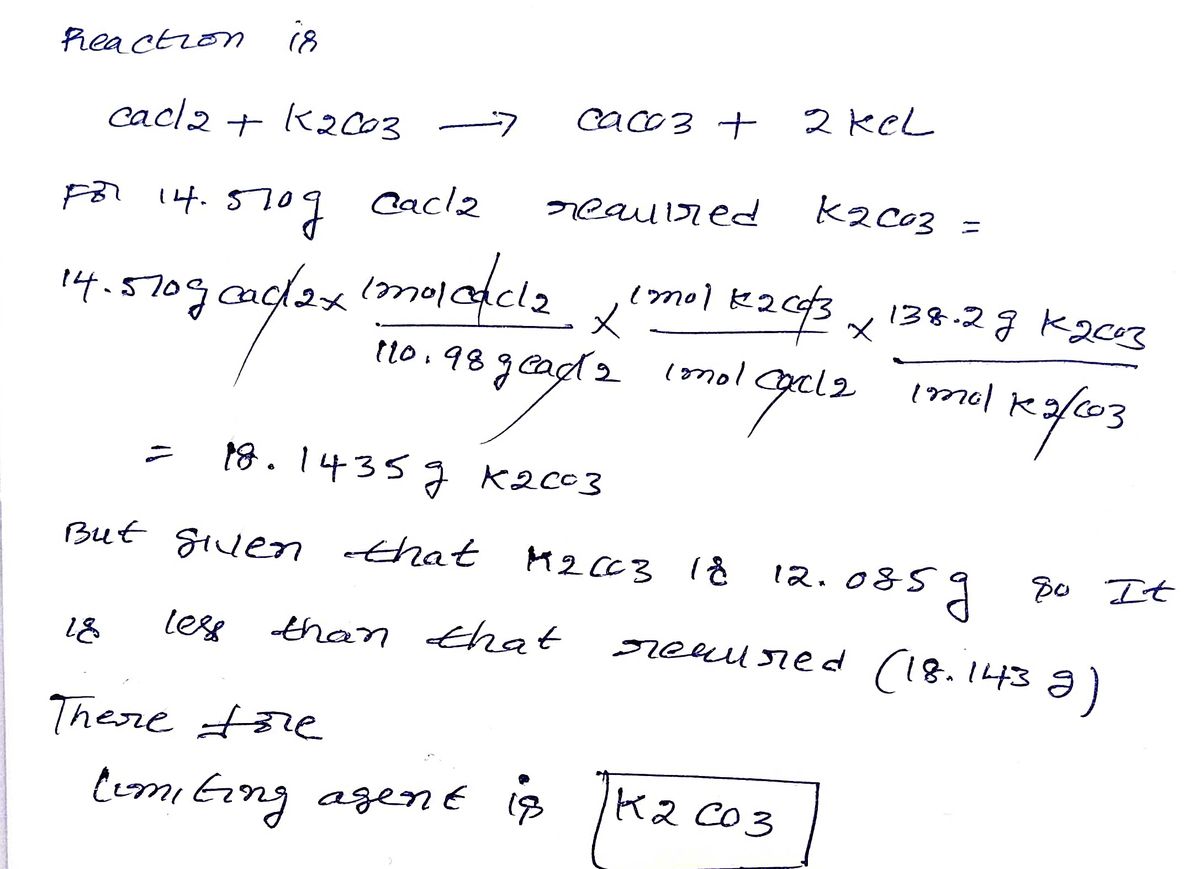 Reaction is
cacl2 + K2CO3 → CaCO3 + 2 KCL
For 14.510g Cacl2 required K2CO3 =
14.510g cacl2 x 1mol cacl2 / 110.98 g cacl2 x 1mol K2CO3 / 1mol cacl2 x 138.2 g K2CO3 / 1mol K2CO3
= 18.1435 g K2CO3
But given that K2CO3 is 12.085 g so It
is less than that required (18.143 g)
There fore
limiting agent is K2CO3